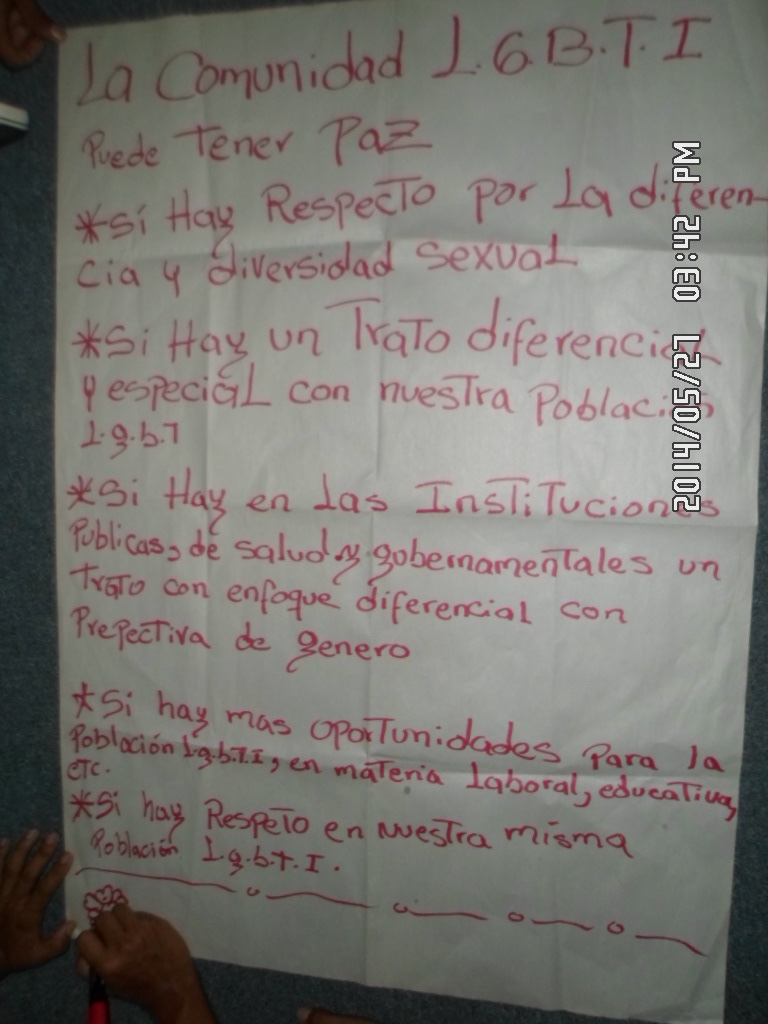 La Comunidad L.G.B.T.I
Puede Tener Paz
*Si Hay Respecto por La diferen-
cia y diversidad sexual
*Si Hay un Trato diferencial
y especial con nuestra Población
L.g.b.T
*Si Hay en Las Instituciones
Publicas, de salud y gobernamentales un
Trato con enfoque diferencial con
Prepectiva de genero
*Si hay mas oporTunidades Para la
Población L.g.b.T.I, en materia Laboral, educativa,
etc.
*Si hay Respeto en nuestra misma
Población L.g.b.t.I.
2014/05/27 03:42 PM